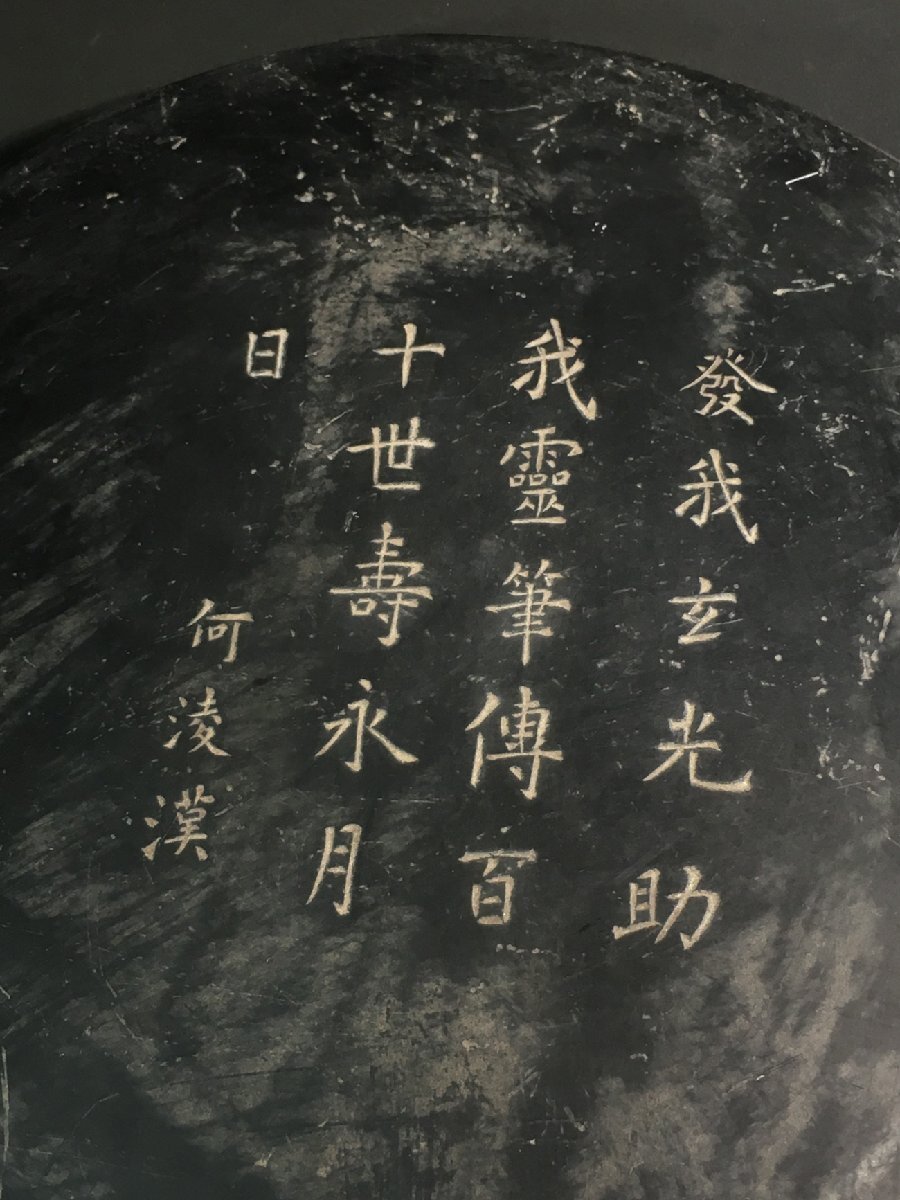 發我玄光助
我靈筆傳百
十世壽永月
日
何淩漢